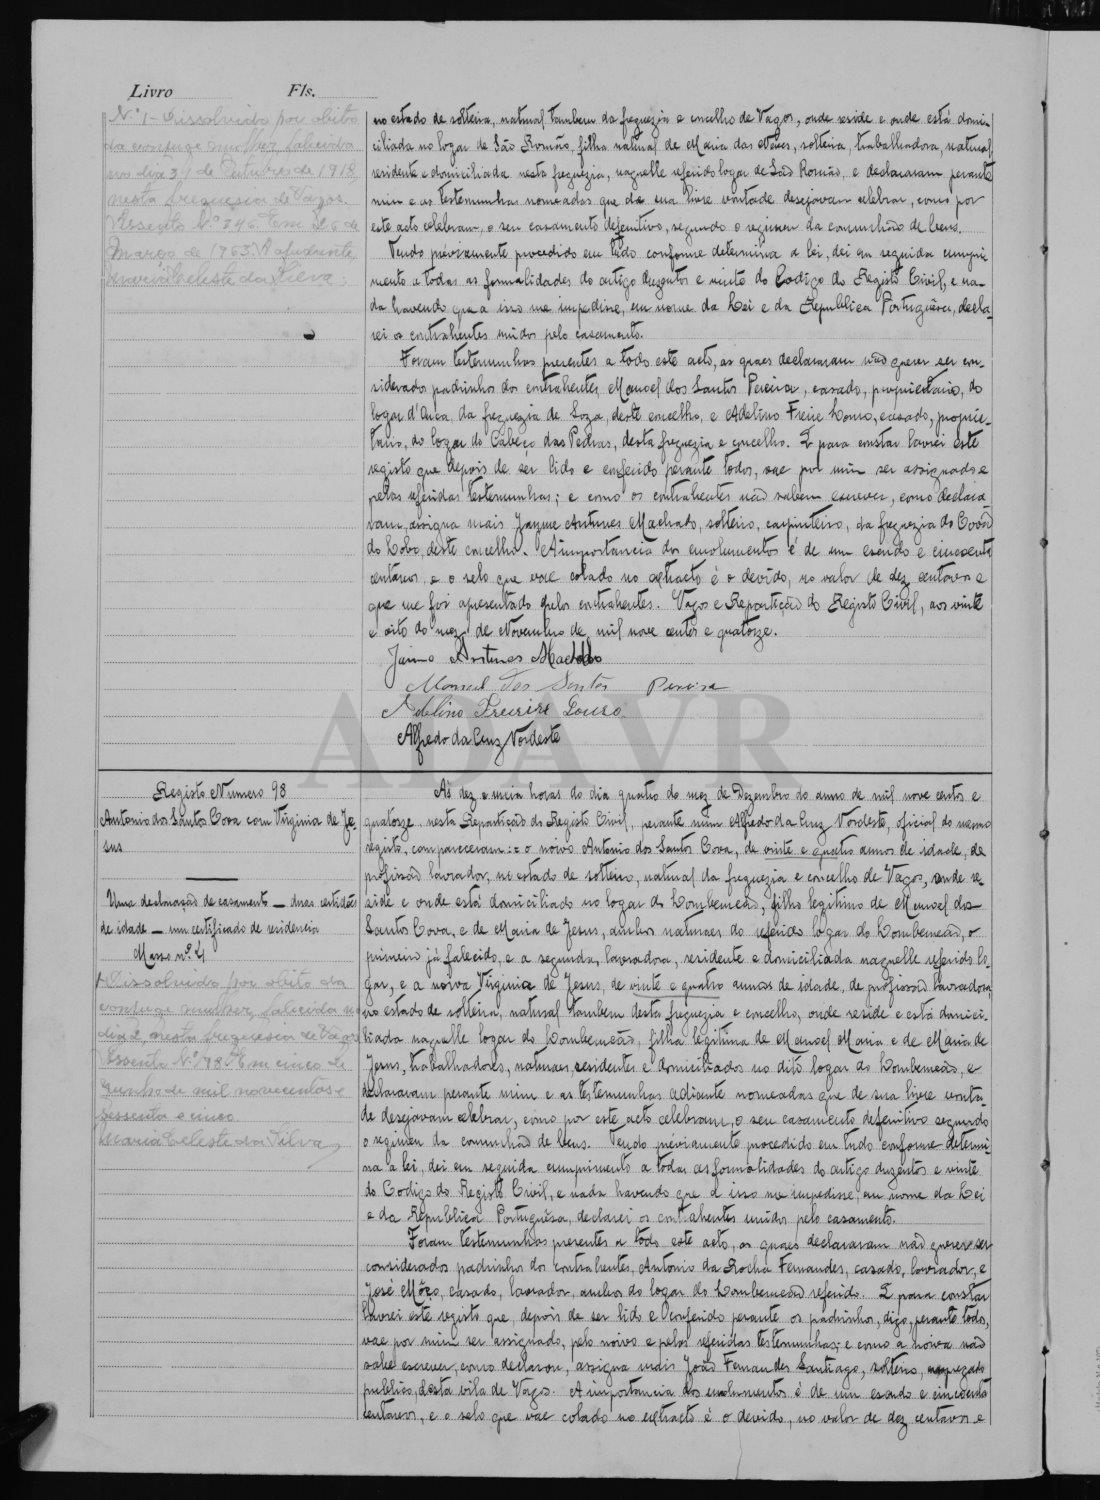 Livro Fls.
N.º 1 - Dissolvido por obito
da conjuge mulher, falecida
no dia 31 de Outubro de 1918,
nesta freguesia de Vagos.
Assento N.º 346. Em 26 de
Março de 1963. A ajudante,
Maria Celeste da Silva
no estado de solteira, natural tambem da freguezia e concelho de Vagos, onde reside e onde está domi-
ciliada no logar de São Romão, filha natural de Maria das Neves, solteira, trabalhadora, natural,
residente e domiciliada nesta freguezia, naquelle referido logar de São Romão, e declararam perante
mim e as testemunhas nomeadas que de sua livre vontade desejavam celebrar, como por
este acto celebram, o seu casamento definitivo, segundo o regimen da communhão de bens.
Tendo préviamente procedido em tudo conforme determina a lei, dei em seguida cumpri-
mento a todas as formalidades do artigo duzentos e vinte do Codigo do Registo Civil, e na-
da havendo que a isso me impedisse, em nome da Lei e da Republica Portuguêsa, decla-
rei os contrahentes unidos pelo casamento.
Foram testemunhas presentes a todo este acto, as quaes declararam não querer ser con-
siderados padrinhos dos contrahentes, Manoel dos Santos Pereira, casado, proprietario, do
logar d'Ouca, da freguezia de Soza, deste concelho, e Adelino Freire Louro, casado, proprie-
tario, do logar do Cabeço das Pedras, desta freguezia e concelho. E para constar lavrei este
registo que, depois de ser lido e conferido perante todos, vae por mim ser assignado e
pelas referidas testemunhas; e como os contrahentes não sabem escrever, como declara-
ram, assigna mais Jayme Antunes Machado, solteiro, carpinteiro, da freguezia do Covão
do Lobo, deste concelho. A importancia dos emolumentos é de um escudo e cincoenta
centavos, e o selo que vae colado no extracto é o devido, no valor de dez centavos e
que me foi apresentado pelos contrahentes. Vagos e Repartição do Registo Civil, aos vinte
e oito do mez de Novembro de mil nove centos e quatorze.
Jaime Antunes Machado
Manuel dos Santos Pereira
Adelino Freire Louro
Alfredo da Cruz Nordeste
ADAVR
Registo Numero 98
Antonio dos Santos Cova com Virginia de Je-
sus
Uma declaração de casamento - duas certidões
de idade - um certificado de residencia
Masso n.º 4
Dissolvido por obito da
conjuge mulher, falecida no
dia 2, nesta freguesia de Vagos
Assento N.º 98. Em cinco de
Junho de mil novecentos e
sessenta e cinco.
Maria Celeste da Silva
Ás dez e meia horas do dia quatro do mez de Dezembro do anno de mil nove centos e
quatorze, nesta Repartição do Registo Civil, perante mim Alfredo da Cruz Nordeste, oficial do mesmo
registo, compareceram: o noivo Antonio dos Santos Cova, de vinte e quatro annos de idade, de
profissão lavrador, no estado de solteiro, natural da freguezia e concelho de Vagos, onde re-
side e onde está domiciliado no logar do Lombomeão, filho legitimo de Manoel dos
Santos Cova, e de Maria de Jesus, ambos naturaes do referido logar do Lombomeão, o
primeiro já falecido, e a segunda, lavradora, residente e domiciliada naquelle referido lo-
gar, e a noiva Virginia de Jesus, de vinte e quatro annos de idade, de profissão lavradora,
no estado de solteira, natural tambem desta freguezia e concelho, onde reside e está domici-
liada naquelle logar do Lombomeão, filha legitima de Manoel Maria e de Maria de
Jesus, trabalhadores, naturaes, residentes e domiciliados no dito logar do Lombomeão, e
declararam perante mim e as testemunhas adiante nomeadas que de sua livre vonta-
de desejavam celebrar, como por este acto celebram, o seu casamento definitivo segundo
o regimen da communhão de bens. Tendo préviamente procedido em tudo conforme determi-
na a lei, dei em seguida cumprimento a todas as formalidades do artigo duzentos e vinte
do Codigo do Registo Civil, e nada havendo que a isso me impedisse, em nome da Lei
e da Republica Portuguêsa, declarei os contrahentes unidos pelo casamento.
Foram testemunhas presentes a todo este acto, as quaes declararam não querer ser
considerados padrinhos dos contrahentes, Antonio da Rocha Fernandes, casado, lavrador, e
José Môço, casado, lavrador, ambos do logar do Lombomeão referido. E para constar
lavrei este registo que, depois de ser lido e conferido perante os padrinhos, digo, perante todos,
vae por mim ser assignado, pelo noivo e pelas referidas testemunhas; e como a noiva não
sabe escrever, como declarou, assigna mais João Fernandes Santiago, solteiro, empregado
publico, desta vila de Vagos. A importancia dos emolumentos é de um escudo e cincoenta
centavos, e o selo que vae colado no extracto é o devido, no valor de dez centavos e